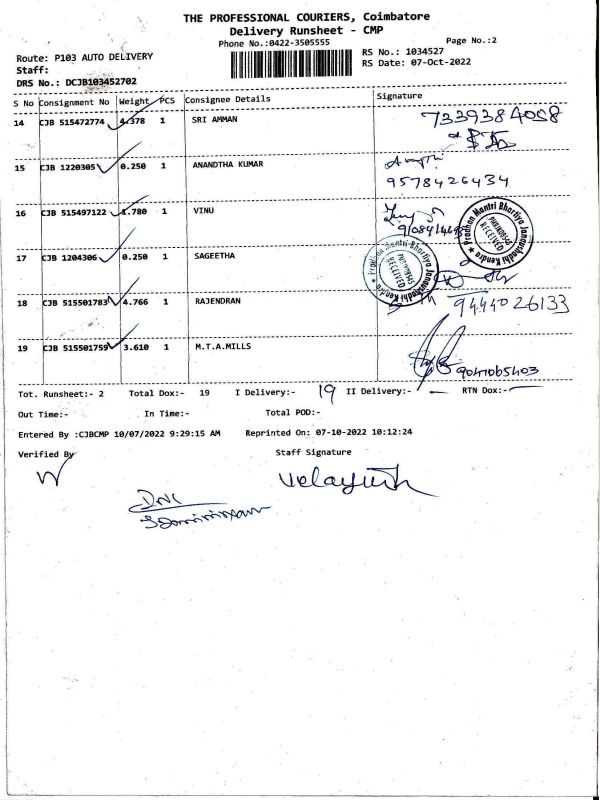 THE PROFESSIONAL COURIERS, Coimbatore
Delivery Runsheet - CMP
Phone No.:0422-3505555
Page No.:2
Route: P103 AUTO DELIVERY
RS No.: 1034527
Staff:
RS Date: 07-Oct-2022
DRS No.: DCJB103452702
S No Consignment No Weight PCS Consignee Details Signature
14 CJB 515472774 4.378 1 SRI AMMAN 7339384058
15 CJB 1220305 0.250 1 ANANDTHA KUMAR
9578426434
16 CJB 515497122 1.780 1 VINU
Pradhan Mantri Bhartiya Janaushadhi Kendra
RECEIVED
17 CJB 1204306 0.250 1 SAGEETHA
Pradhan Mantri Bhartiya Janaushadhi Kendra
RECEIVED
18 CJB 515501783 4.766 1 RAJENDRAN 9444026133
19 CJB 515501759 3.610 1 M.T.A.MILLS
9041065403
Tot. Runsheet:- 2 Total Dox:- 19 I Delivery:- 19 II Delivery:- — RTN Dox:- —
Out Time:- In Time:- Total POD:-
Entered By :CJBCMP 10/07/2022 9:29:15 AM Reprinted On: 07-10-2022 10:12:24
Verified By Staff Signature